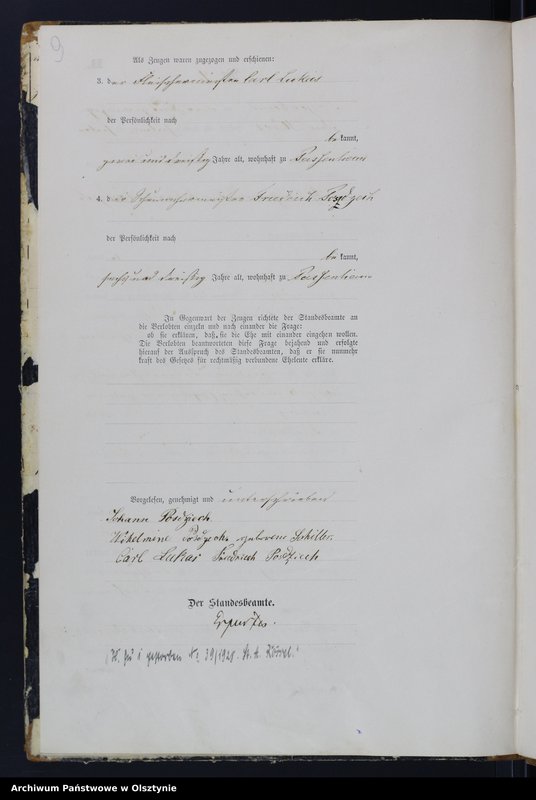 9
Als Zeugen waren zugezogen und erschienen:
3. der Fleischermeister Carl Lukas
der Persönlichkeit nach
be kannt,
zwei und dreißig Jahre alt, wohnhaft zu Passenheim
4. der Schuhmachermeister Friedrich Posdziech
der Persönlichkeit nach
be kannt,
sechs und dreißig Jahre alt, wohnhaft zu Passenheim
In Gegenwart der Zeugen richtete der Standesbeamte an
die Verlobten einzeln und nach einander die Frage:
ob sie erklären, daß sie die Ehe mit einander eingehen wollen.
Die Verlobten beantworteten diese Frage bejahend und erfolgte
hierauf der Ausspruch des Standesbeamten, daß er sie nunmehr
kraft des Gesetzes für rechtmäßig verbundene Eheleute erkläre.
Vorgelesen, genehmigt und unterschrieben
Johann Posdziech
Wilhelmine Posdziech geborene Schiller
Carl Lukas Friedrich Posdziech
Der Standesbeamte.
zu 1 gestorben Nr. 39/1928 St. A.
Archiwum Państwowe w Olsztynie